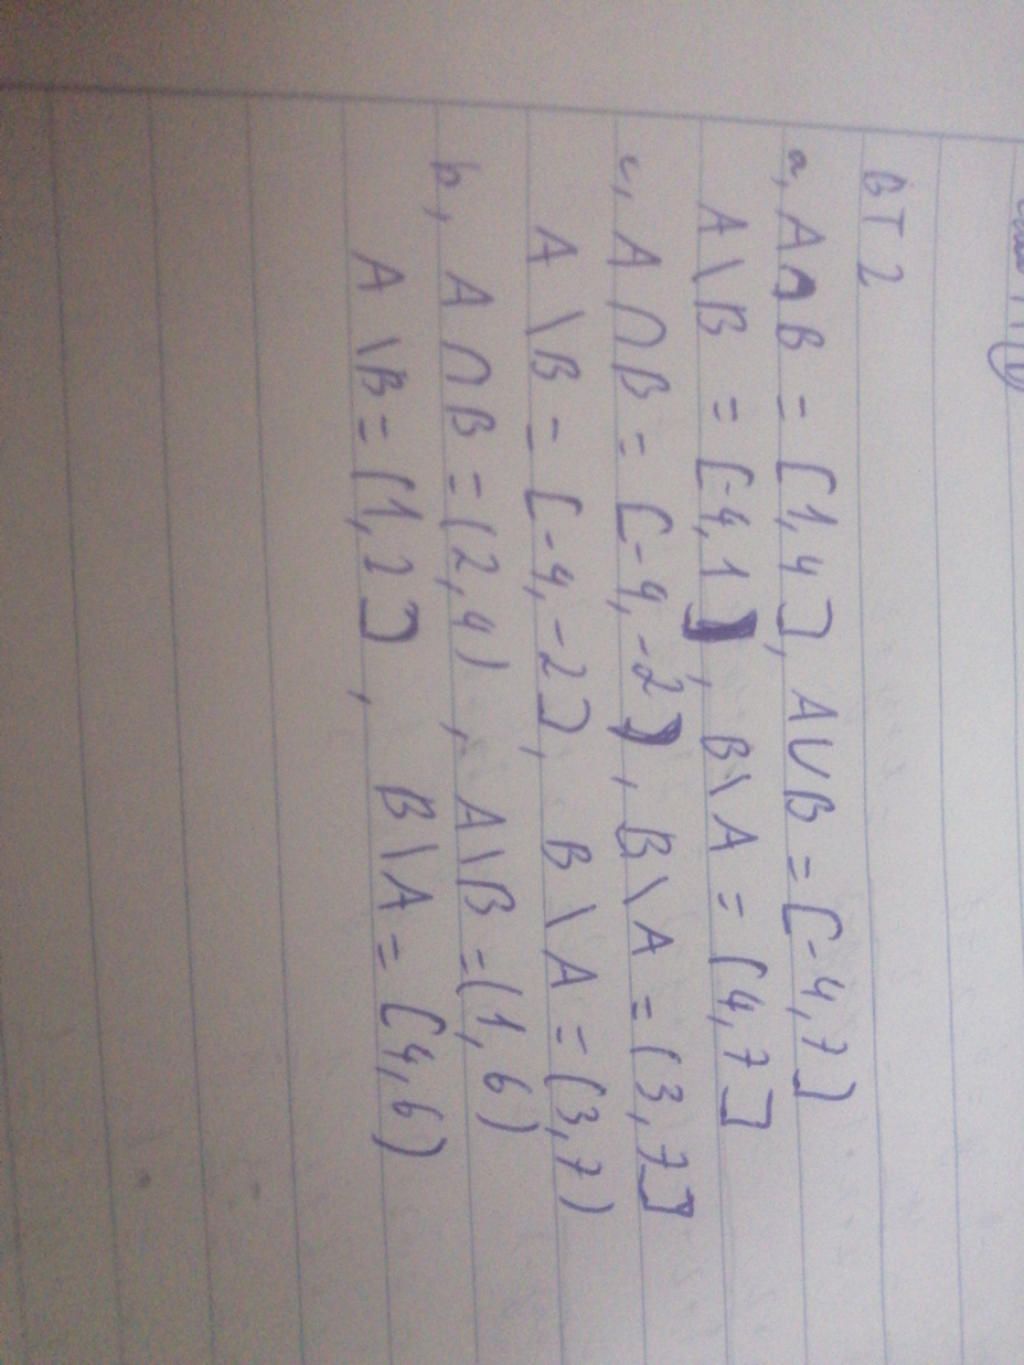 BT 2
a, A∩B = [1,4], A∪B = [-4,7]
A\B = [-4,1], B\A = (4,7]
c, A∩B = [-4,-2], B\A = (3,7]
A\B = [-4,-2], B\A = (3,7)
b, A∩B = (2,4), A\B = (1,6)
A\B = (1,2], B\A = [4,6)